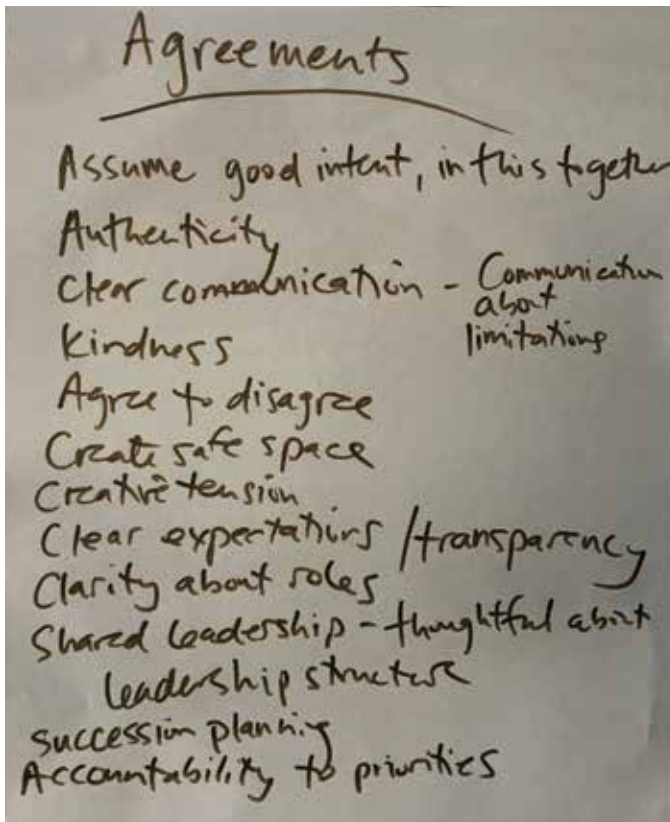 Agreements
Assume good intent, in this together
Authenticity
Clear communication - Communication
about
limitations
Kindness
Agree to disagree
Create safe space
Creative tension
Clear expectations / transparency
Clarity about roles
Shared leadership - thoughtful about
leadership structure
succession planning
Accountability to priorities